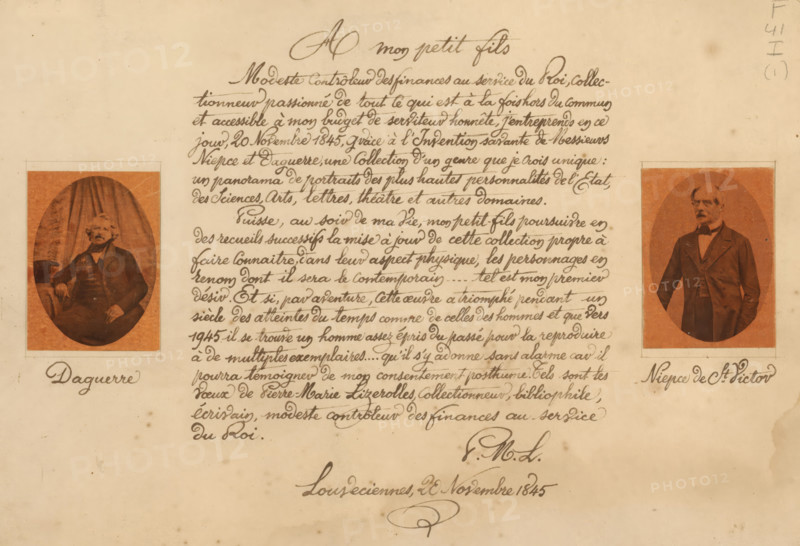 F
41
I
(1)
A mon petit fils
Modeste Contrôleur des finances au service du Roi, Collec-
tionneur passionné de tout ce qui est à la fois hors du commun
et accessible à mon budget de serviteur honnête, j'entreprends en ce
jour, 20 Novembre 1845, grâce à l'Invention savante de Messieurs
Niepce et Daguerre, une Collection d'un genre que je crois unique :
un panorama de portraits des plus hautes personnalités de l'Etat,
des Sciences, Arts, lettres, théâtre et autres domaines.
Puisse, au soir de ma Vie, mon petit fils poursuivre en
des recueils successifs la mise à jour de cette collection propre à
faire connaitre, dans leur aspect physique, les personnages en
renom dont il sera le contemporain ..... tel est mon premier
désir. Et si, par aventure, cette œuvre a triomphé pendant un
siècle des atteintes du temps comme de celles des hommes et que vers
1945 il se trouve un homme assez épris du passé pour la reproduire
à de multiples exemplaires.... qu'il s'y adonne sans alarme car il
pourra témoigner de mon consentement posthume. Tels sont les
vœux de Pierre-Marie Lizerolles, Collectionneur, bibliophile,
écrivain, modeste contrôleur des finances au service
du Roi.
P. M. L.
Louveciennes, 20 Novembre 1845
Daguerre
Niepce de St. Victor
PHOTO12